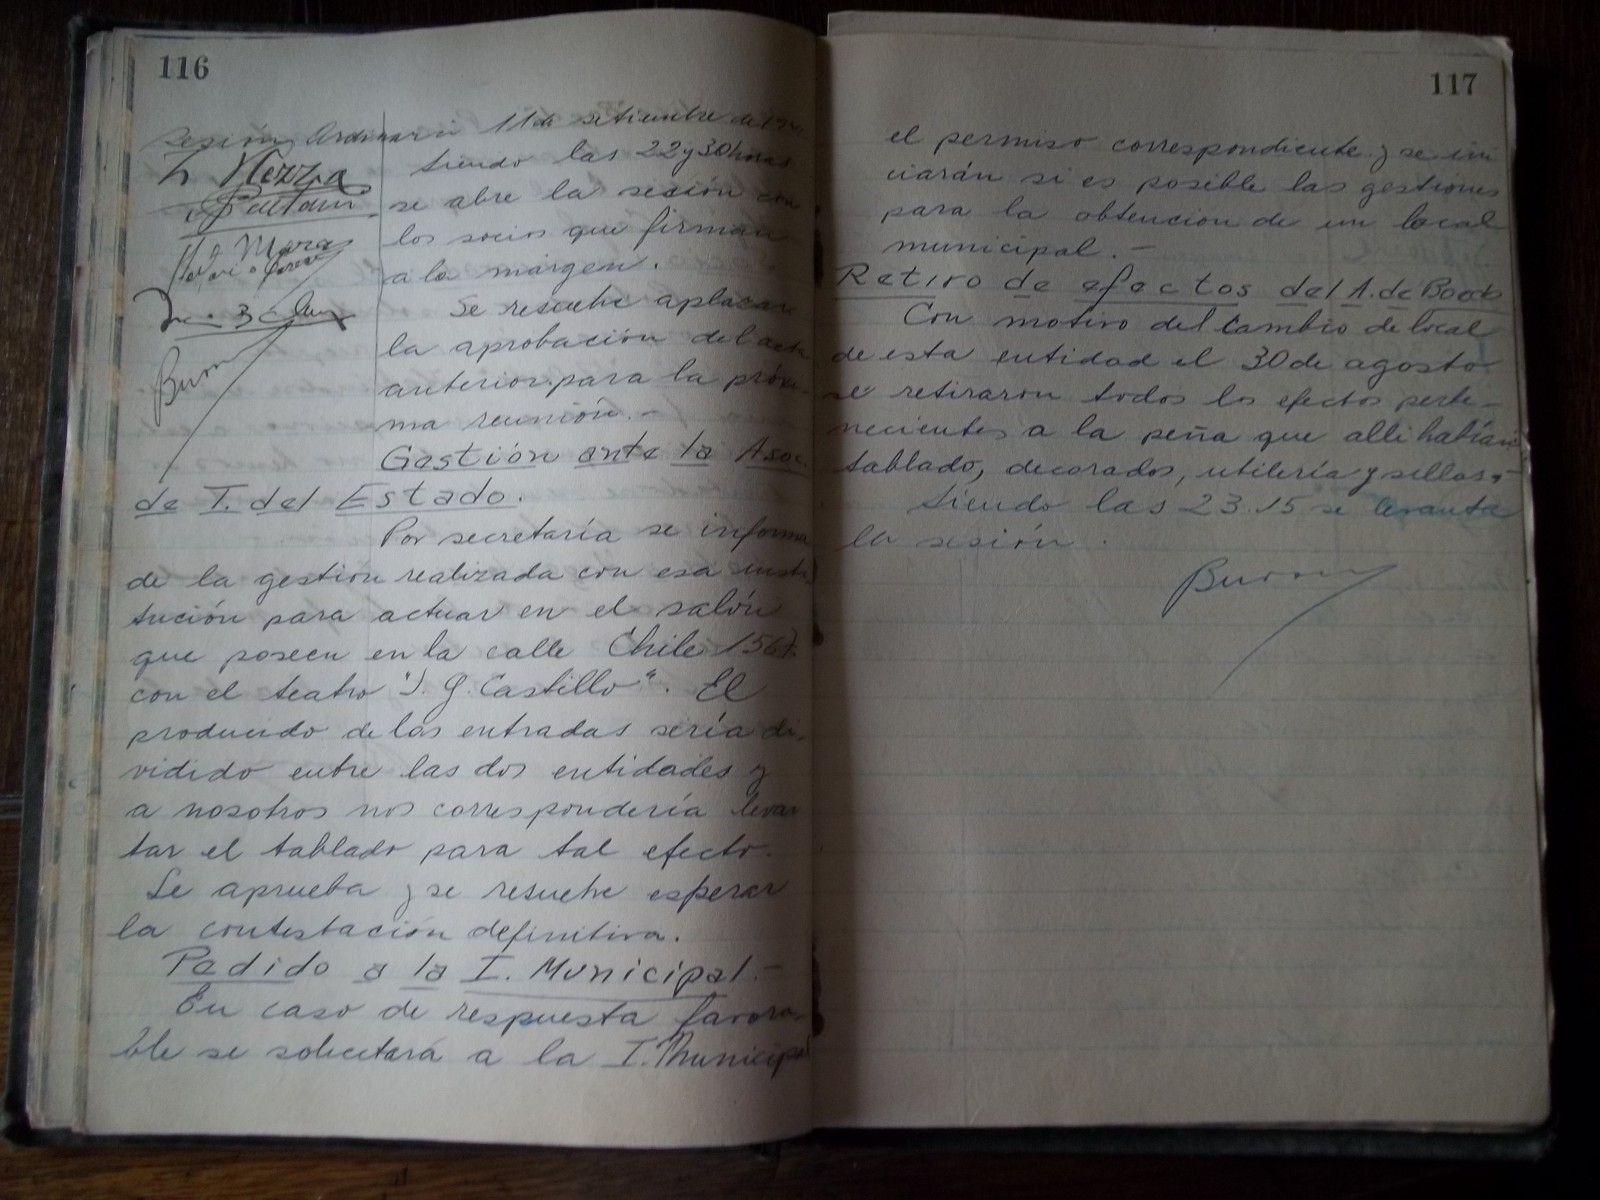 116
Sesión Ordinaria 11 de setiembre de
Siendo las 22 y 30 horas
se abre la sesión con
los socios que firman
a la márgen.
Se resuelve aplazar
la aprobación del acta
anterior para la próxi-
ma reunión.-
Gestión ante la Asoc.
de T. del Estado.
Por secretaría se informa
de la gestión realizada con esa insti
tución para actuar en el salón
que poseen en la calle Chile 1567.
con el teatro "J. G. Castillo". El
producido de las entradas sería di-
vidido entre las dos entidades y
a nosotros nos correspondería levan
tar el tablado para tal efecto.
Se aprueba y se resuelve esperar
la contestación definitiva.
Pedido a la I. Municipal.-
En caso de respuesta favora-
ble se solicitará a la I. Municipal
117
el permiso correspondiente y se ini
ciarán si es posible las gestiones
para la obtención de un local
municipal.-
Retiro de efectos del A. de Boedo
Con motivo del cambio de local
de esta entidad el 30 de agosto
se retiraron todos los efectos perte-
necientes a la peña que alli habían
tablado, decorados, utilería y sillas,-
Siendo las 23.15 se levanta
la sesión.